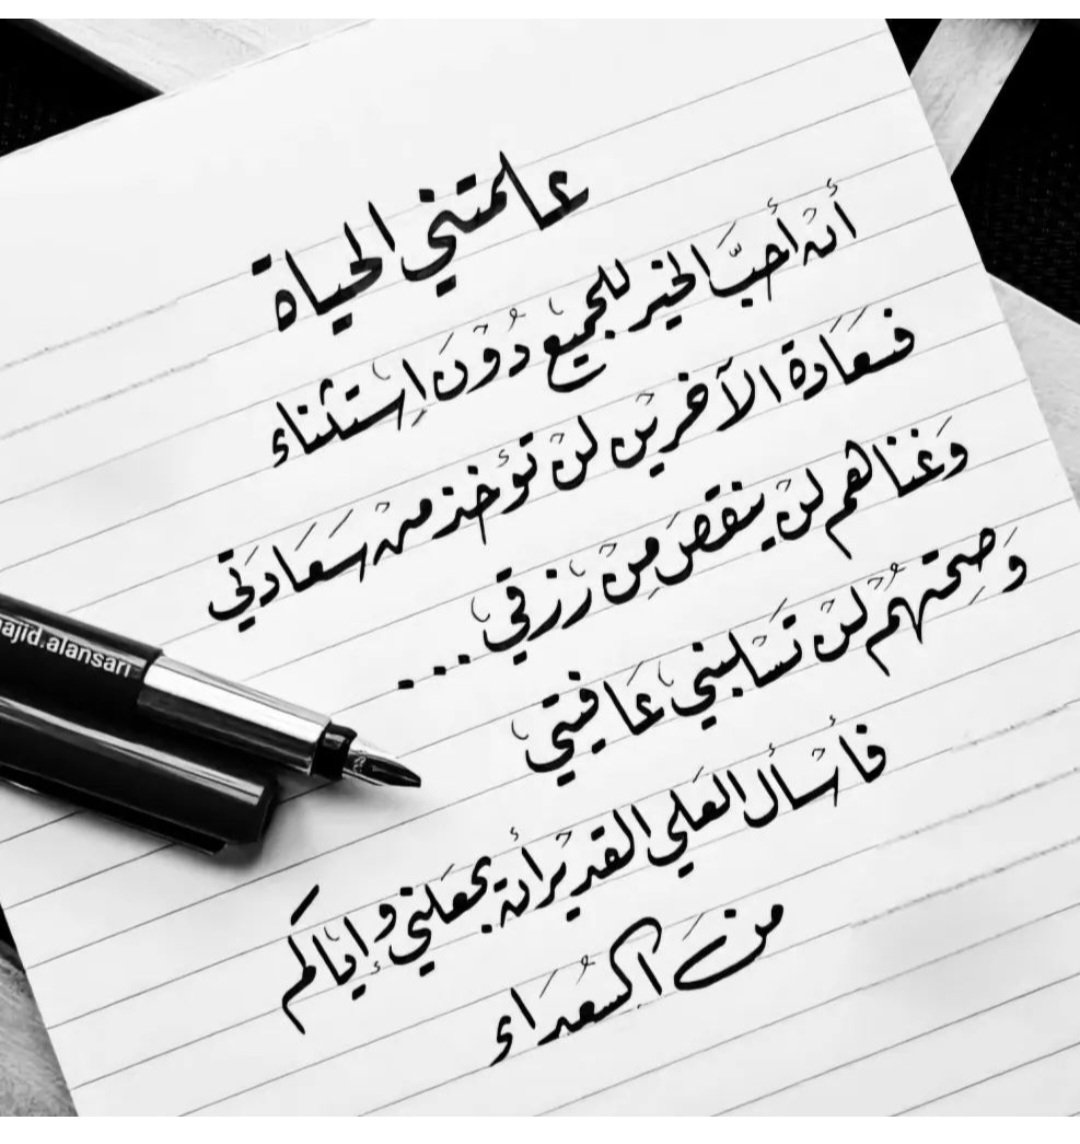 علمتني الحياة
أن أحبَّ الخير للجميع دُوْنَ اِستثناء
فسَعَادة الآخرين لنْ تؤخذ منْ سَعَادَتي
وَغناهم لنْ ينقصَ مِنْ رَزقي...
وَصِحتهُمْ لنْ تَسْلبني عَافيتي
فأسْأل العَلي القديْر أن يجعَلني وإياكم
منَ السُعدَاء
ajid.alansari